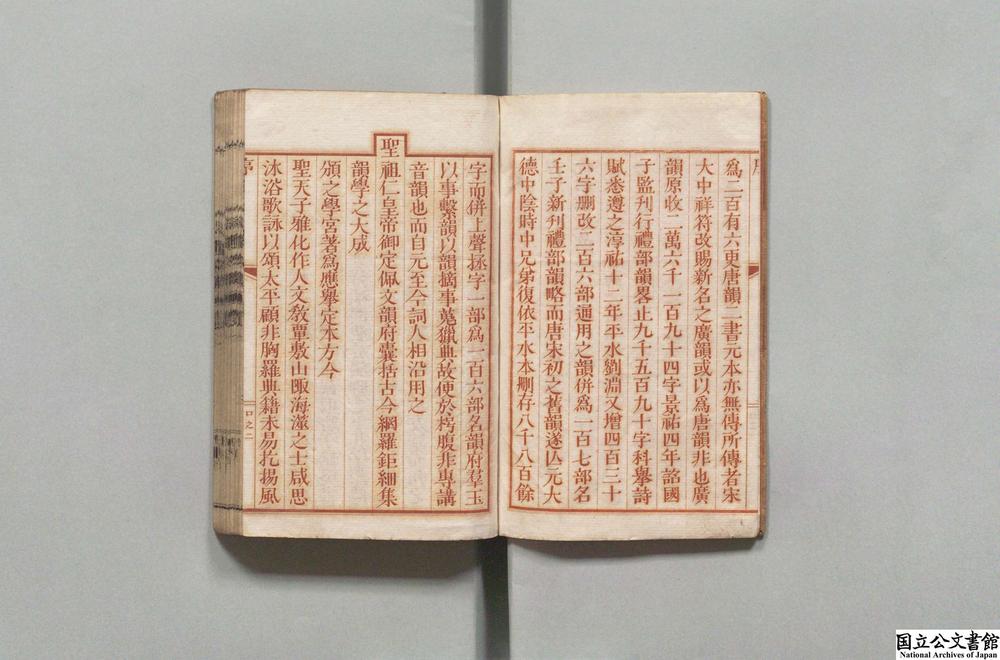 序
為二百有六更唐韻二書元本亦無傳所傳者宋
大中祥符改賜新名之廣韻或以為唐韻非也廣
韻原收二萬六千一百九十四字景祐四年詔國
子監刊行禮部韻畧止九千五百九十字科舉詩
賦悉遵之淳祐十二年平水劉淵又增四百三十
六字刪改二百六部通用之韻併為一百七部名
壬子新刊禮部韻略而唐宋初之舊韻遂亾元大
德中陰時中兄弟復依平水本刪存八千八百餘
字而併上聲拯字一部為一百六部名韻府羣玉
以事繫韻以韻摘事蒐獵典故便於枵腹非專講
音韻也而自元至今詞人相沿用之
聖祖仁皇帝御定佩文韻府囊括古今網羅鉅細集
韻學之大成
頒之學宮著為應舉定本方今
聖天子雅化作人文敎覃敷山陬海澨之士咸思
沐浴歌詠以頌太平顧非胸羅典籍未易扢揚風
序
口之二
国立公文書館
National Archives of Japan